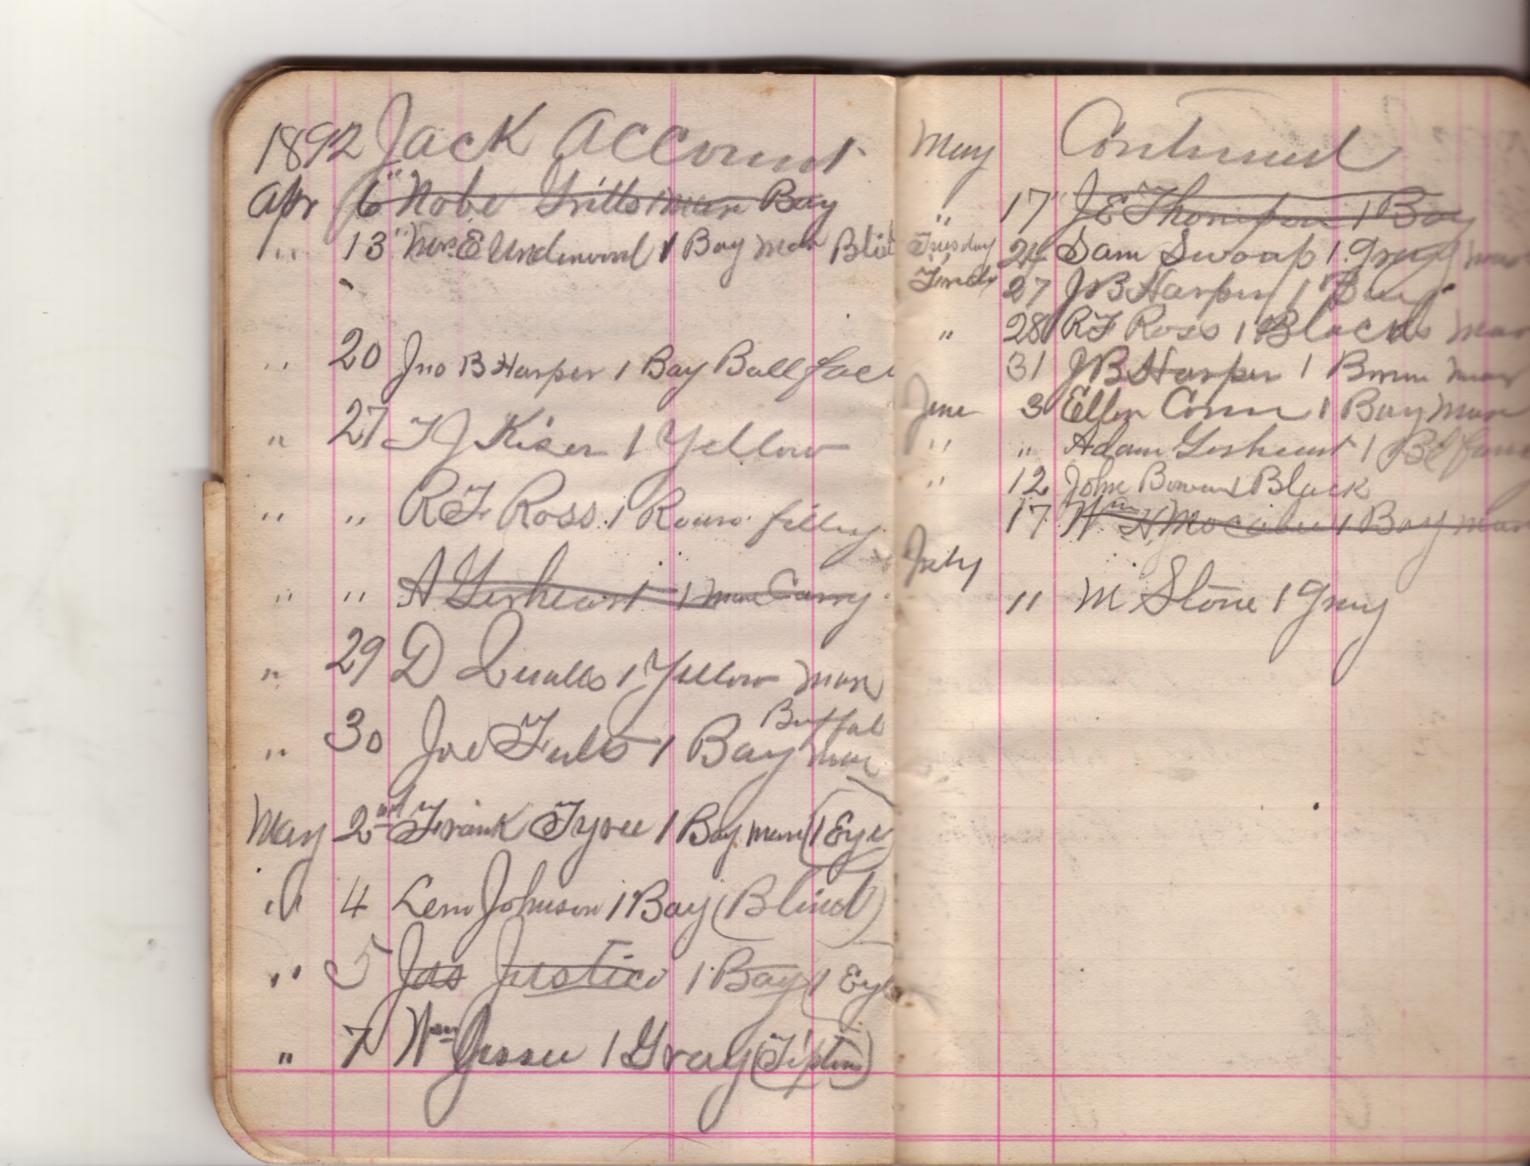 1892 Jack Account
Apr 6" Nobe Gritts 1 mare Bay
" 13" Mrs. E Underwood 1 Bay mare Blid
" 20 Jno B Harper 1 Bay Ball face
" 27 T J Kiser 1 Yellow
" " R F Ross 1 Roan filley
" " A Gerheart 1 mare Carry
" 29 D Qualls 1 Yellow mare
Buffal
" 30 Joe Fults 1 Bay mare
May 2nd Frank Tyree 1 Bay mare (1 Eye
" 4 Lem Johnson 1 Bay (Blind)
" 5 Jas Justice 1 Bay (1 Eye
" 7 Wm Jesse 1 Gray (Tipton)
May Continued
" 17" J E Thompson 1 Bay
Tuesday 24 Sam Swoap 1 Gray mare
27 J B Harper 1 Bay
" 28 R F Ross 1 Black mare
31 J B Harper 1 Brown mare
June 3 Ellen Conn 1 Bay mare
" " Adam Gerheart 1
" 12 John Bowen 1 Black
17 Wm H 1 Bay mare
July
" M Stone 1 Gray